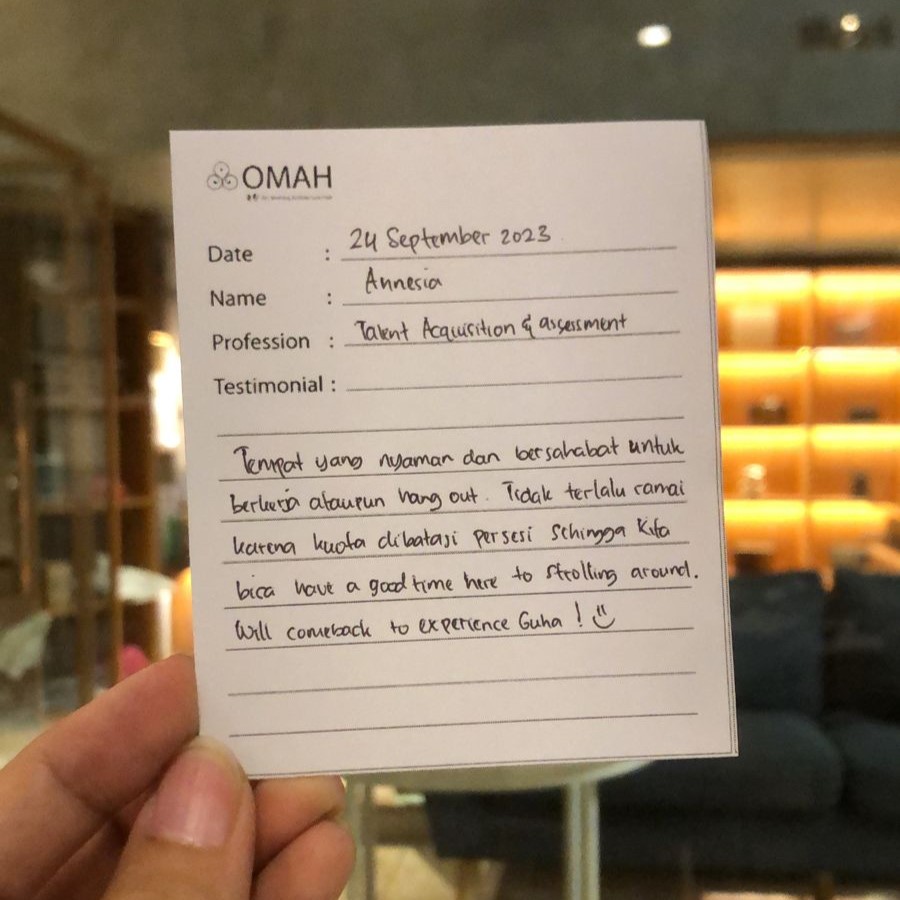 OMAH
Date : 24 September 2023
Name : Annesia
Profession : Talent Acquisition & assessment
Testimonial :
Tempat yang nyaman dan bersahabat untuk
berkerja ataupun hang out. Tidak terlalu ramai
karena kuota dibatasi persesi sehingga kita
bisa have a good time here to strolling around.
Will comeback to experience Guha! :)